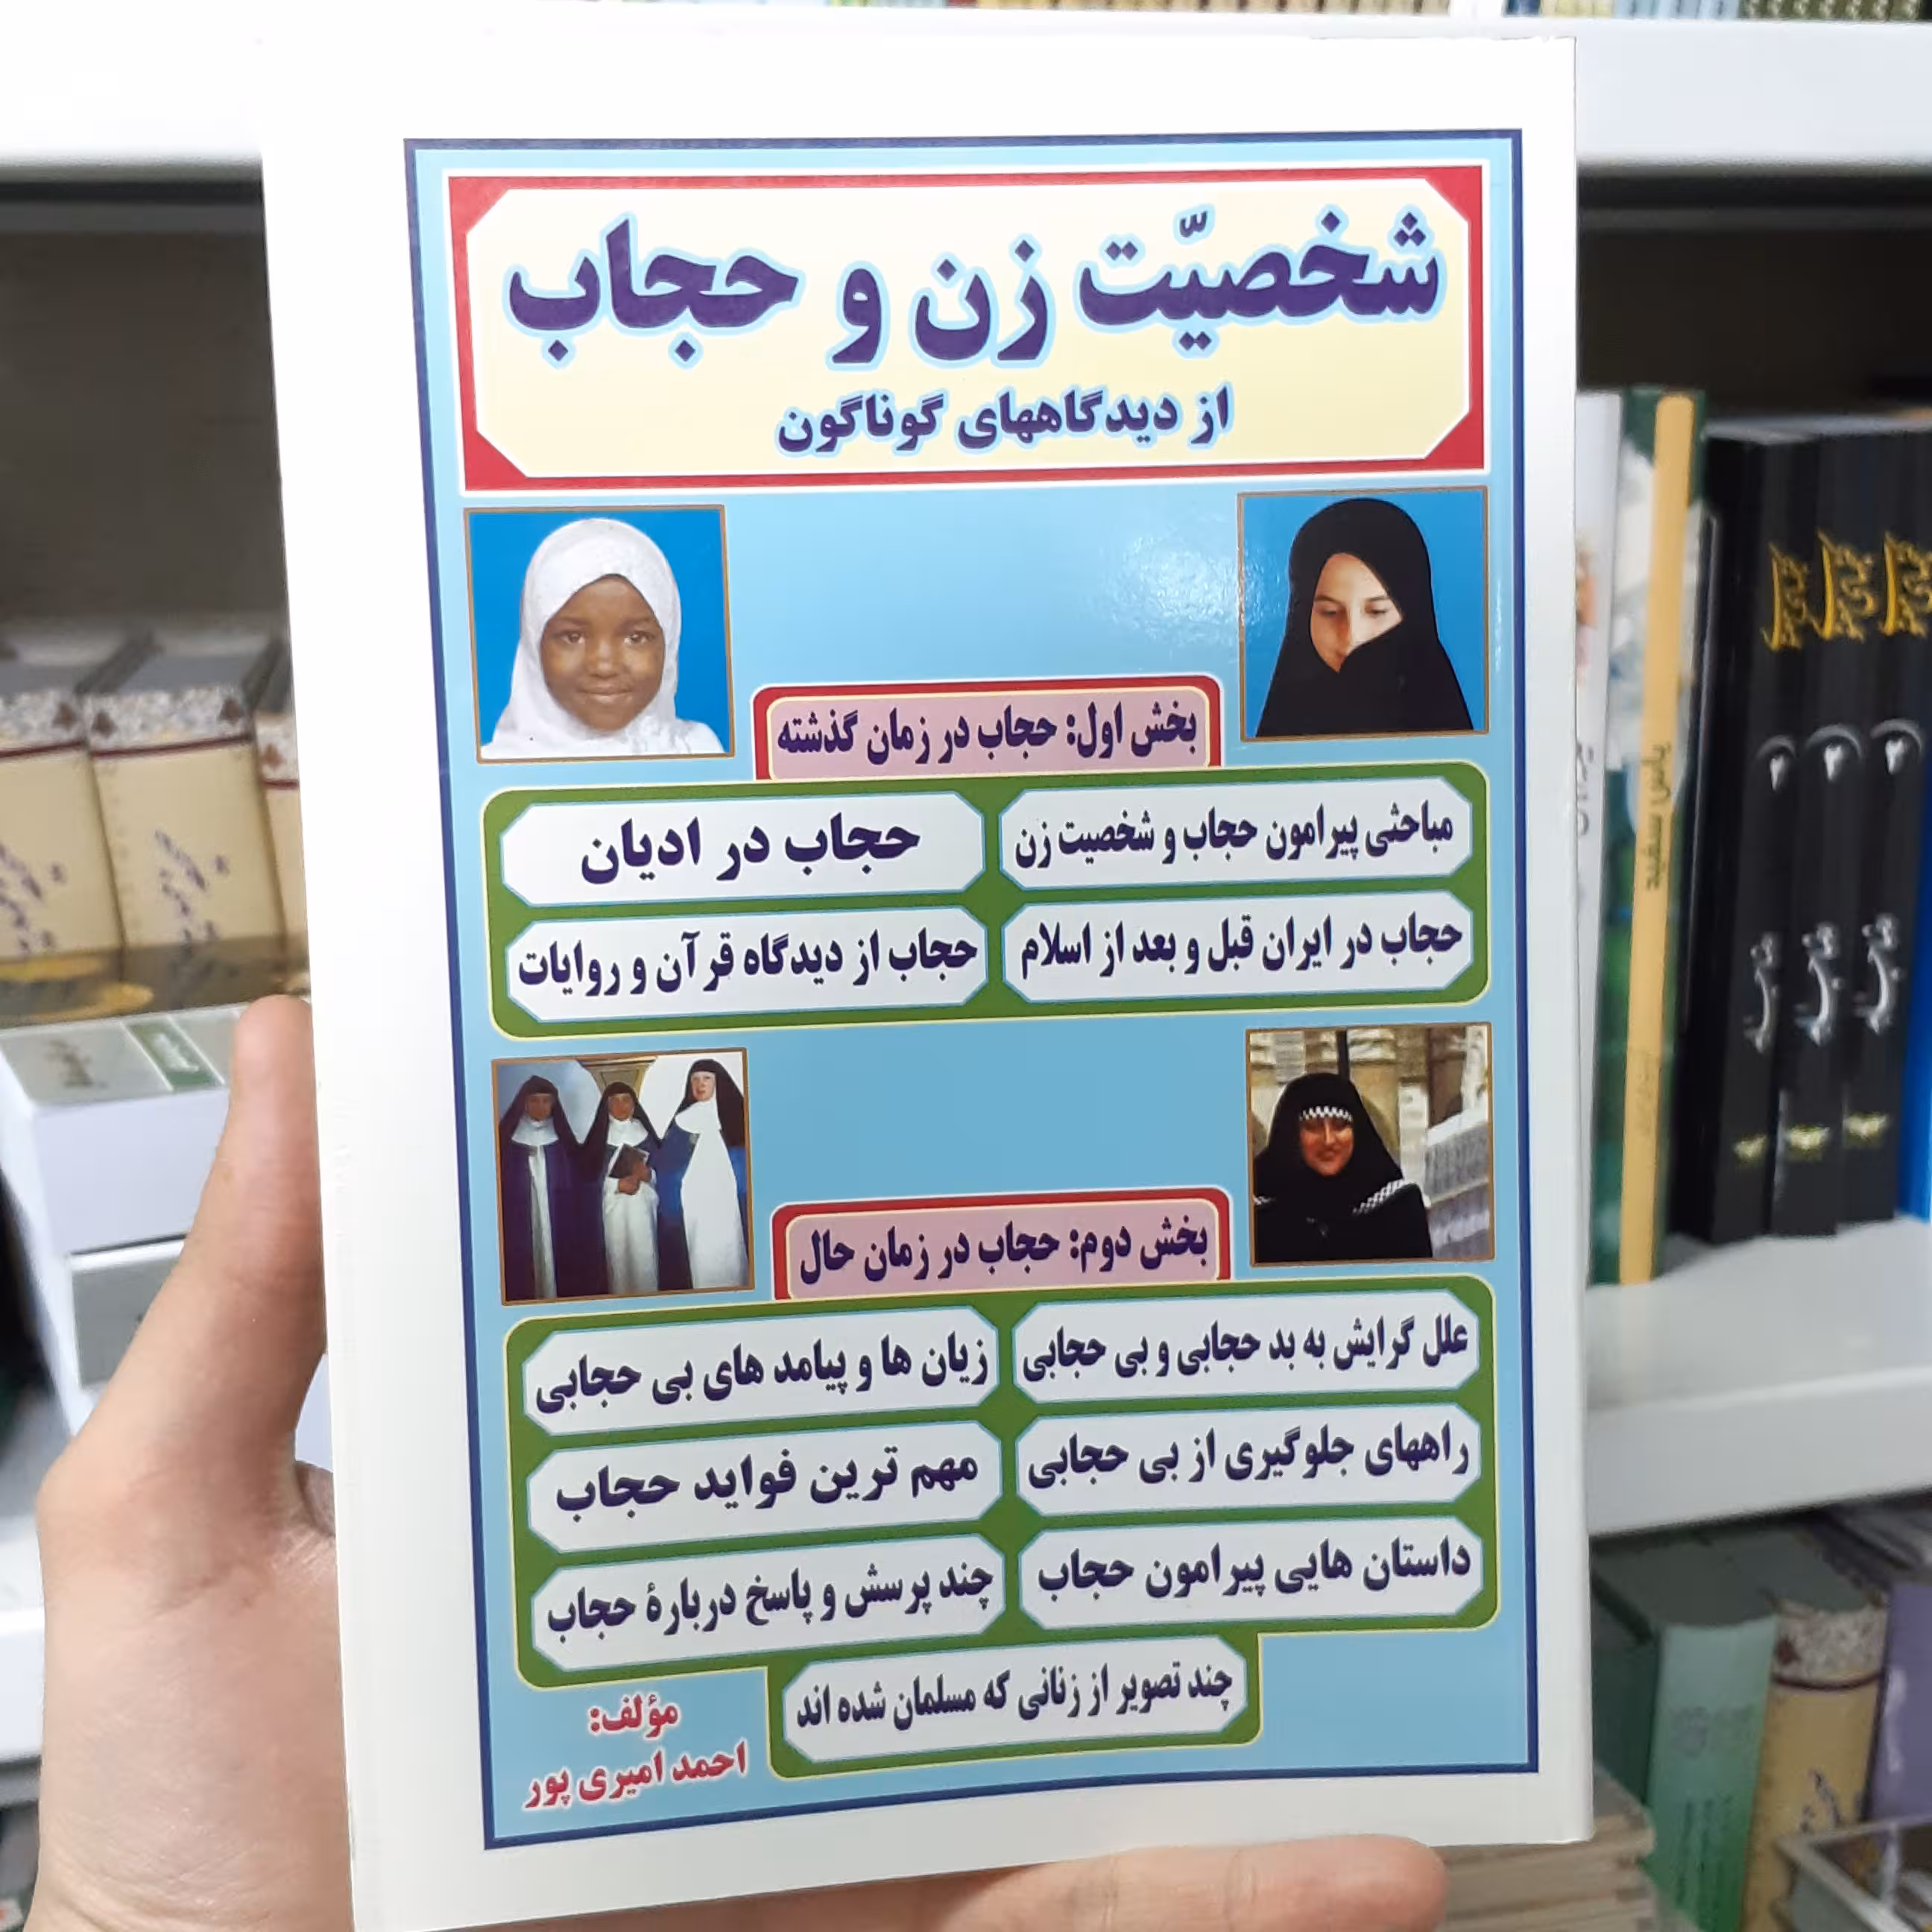 شخصیّت زن و حجاب
از دیدگاههای گوناگون
بخش اول: حجاب در زمان گذشته
مباحثی پیرامون حجاب و شخصیت زن
حجاب در ادیان
حجاب در ایران قبل و بعد از اسلام
حجاب از دیدگاه قرآن و روایات
بخش دوم: حجاب در زمان حال
علل گرایش به بد حجابی و بی حجابی
زیان ها و پیامد های بی حجابی
راههای جلوگیری از بی حجابی
مهم ترین فواید حجاب
داستان هایی پیرامون حجاب
چند پرسش و پاسخ دربارهٔ حجاب
چند تصویر از زنانی که مسلمان شده اند
مؤلف:
احمد امیری پور